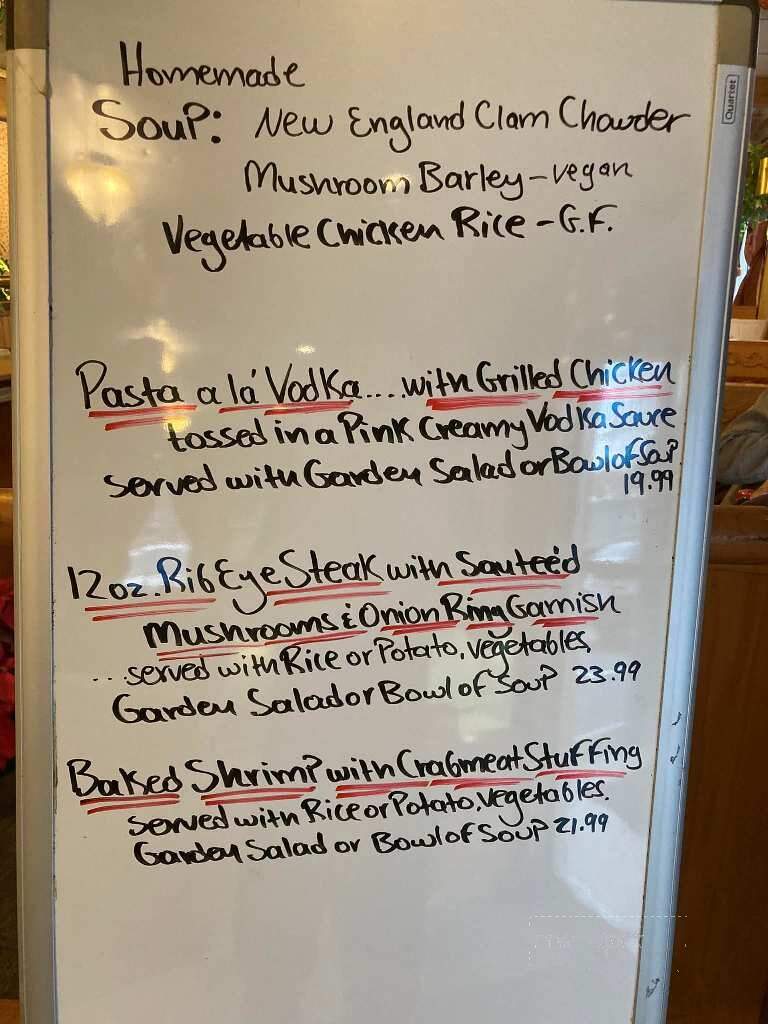 Homemade
Soup: New England Clam Chowder
Mushroom Barley - vegan
Vegetable Chicken Rice - G.F.
Pasta a lá Vodka....with Grilled Chicken
tossed in a Pink Creamy Vodka Sauce
served with Garden Salad or Bowl of Soup
19.99
12oz. Rib Eye Steak with Sauteéd
Mushrooms & Onion Ring Garnish
...served with Rice or Potato, vegetables,
Garden Salad or Bowl of Soup 23.99
Baked Shrimp with Crabmeat Stuffing
served with Rice or Potato, vegetables.
Garden Salad or Bowl of Soup 21.99
Quartet